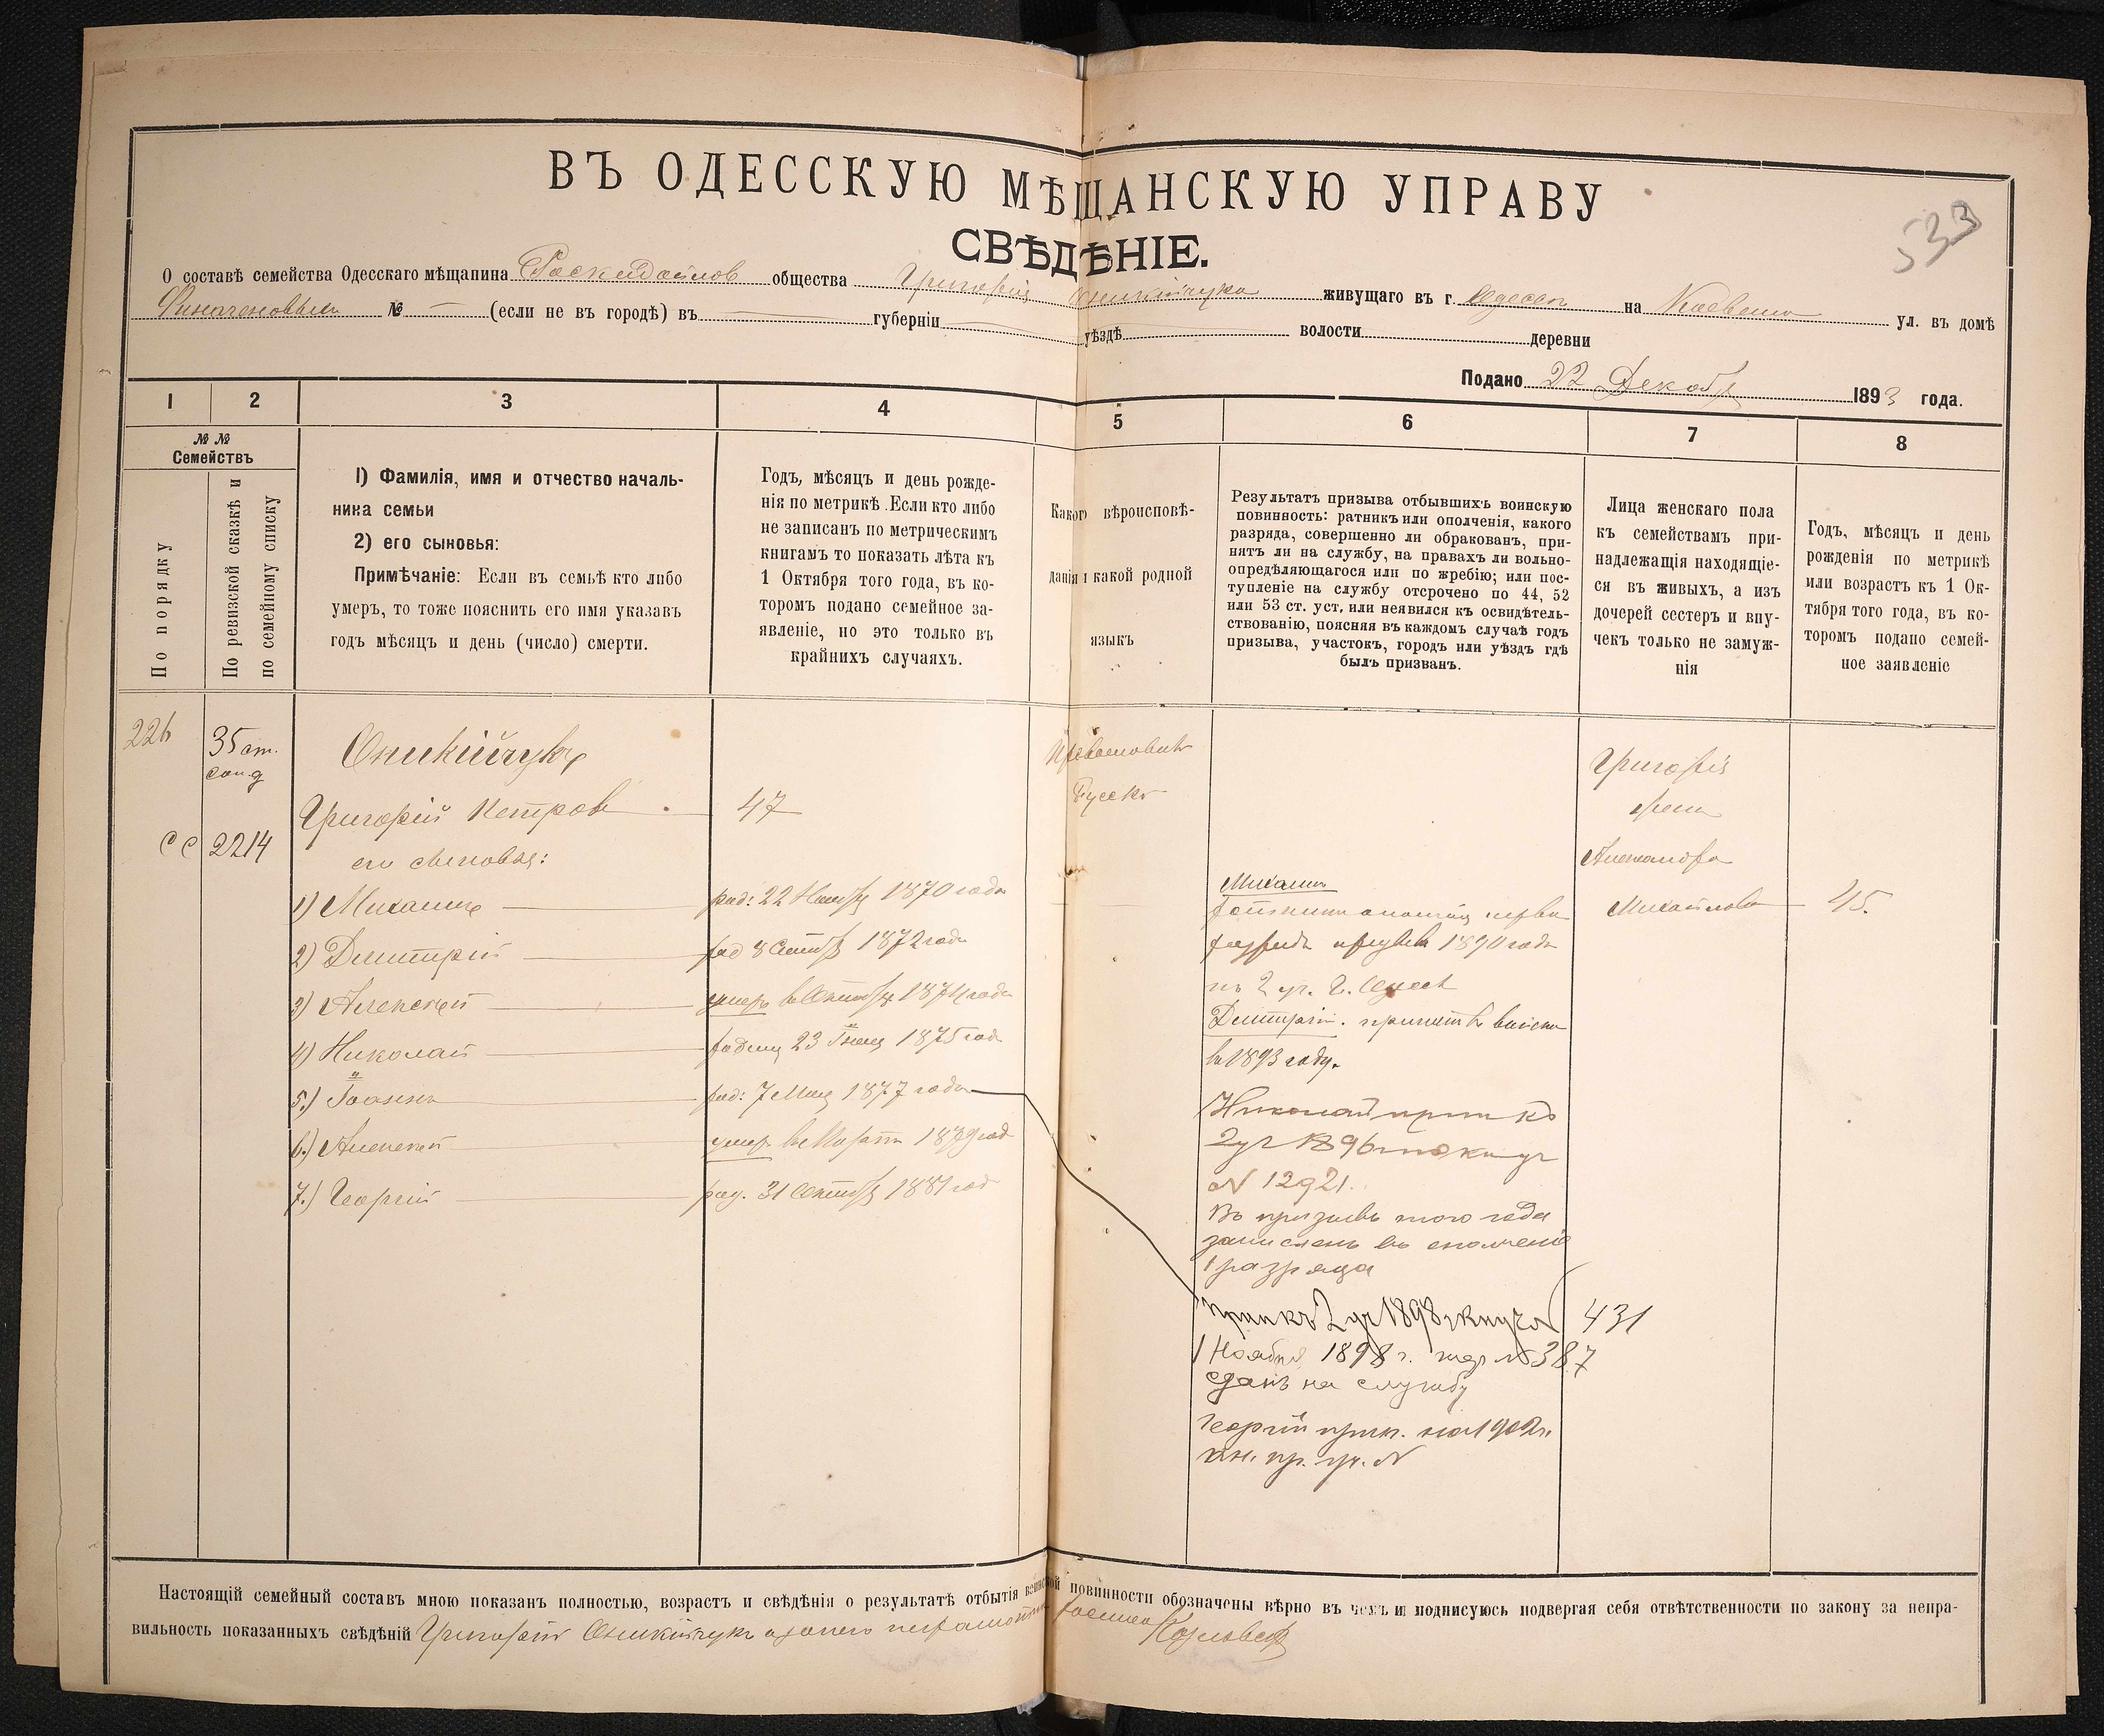 ВЪ ОДЕССКУЮ МѢЩАНСКУЮ УПРАВУ
СВѢДѢНІЕ.
533
О составѣ семейства Одесскаго мѣщанина Раскидайлов общества Григорія Оникійчука живущаго въ г. Одессѣ на ул. въ домѣ
№ — (если не въ городѣ) въ губерніи уѣздѣ волости деревни
Подано 22 Декабр 1893 года.
1 2 3 4 5 6 7 8
№ № Семействъ
По порядку
По ревизской сказкѣ и по семейному списку
1) Фамилія, имя и отчество началь-
ника семьи
2) его сыновья:
Примѣчаніе: Если въ семьѣ кто либо
умеръ, то тоже пояснить его имя указавъ
годъ мѣсяцъ и день (число) смерти.
Годъ, мѣсяцъ и день рожде-
нія по метрикѣ. Если кто либо
не записанъ по метрическимъ
книгамъ то показать лѣта къ
1 Октября того года, въ ко-
торомъ подано семейное за-
явленіе, но это только въ
крайнихъ случаяхъ.
Какого вѣроисповѣ-
данія и какой родной
языкъ
Результатъ призыва отбывшихъ воинскую
повинность: ратникъ или ополченія, какого
разряда, совершенно ли обракованъ, при-
нятъ ли на службу, на правахъ ли вольно-
опредѣляющагося или по жребію; или пос-
тупленіе на службу отсрочено по 44, 52
или 53 ст. уст, или неявился къ освидѣтель-
ствованію, поясняя въ каждомъ случаѣ годъ
призыва, участокъ, городъ или уѣздъ гдѣ
былъ призванъ.
Лица женскаго пола
къ семействамъ при-
надлежащія находящіе-
ся въ живыхъ, а изъ
дочерей сестеръ и вну-
чекъ только не замуж-
нія
Годъ, мѣсяцъ и день
рожденія по метрикѣ
или возрастъ къ 1 Ок-
тября того года, въ ко-
торомъ подано семей-
ное заявленіе
226
35 ст.
2214
Оникійчукъ
Григорій Петров
47
его сыновья:
1) Михаилъ
род: 22 Ноября 1870 года
2) Дмитрій
род 8 Сентяб 1872 года
3) Алексѣй
умеръ въ Октябр 1874 года
4) Николай
родил 23 Іюня 1875 год
5.) Іоаннъ
род: 7 Мая 1877 года
6.) Алексѣй
умер. въ Мартѣ 1879 год
7.) Георгій
род. 31 Октяб 1881 год
Православн
Русскі
Михаилъ
ратникъ ополчен перва
разряда призыва 1890 года
по 2 уч. г. Одесс
Дмитрій. принятъ въ войска
въ 1893 году.
Николай прип къ
2 уч 1896
№ 12921.
Въ призывъ того года
зачисленъ въ ополченіе
1 разряда
прип къ 2 уч 1898 г № 431
1 Ноября 1898 г. жер № 387
сданъ на службу
Георгій прип. на 1902 г.
пр. уч. №
Григорія
жена
Александра
Михайлова
45.
Настоящій семейный составъ мною показанъ полностью, возрастъ и свѣдѣнія о результатѣ отбытія воинской повинности обозначены вѣрно въ чемъ и подписуюсь подвергая себя отвѣтственности по закону за непра-
вильность показанныхъ свѣдѣній Григорій Оникійчукъ а за него неграмотн